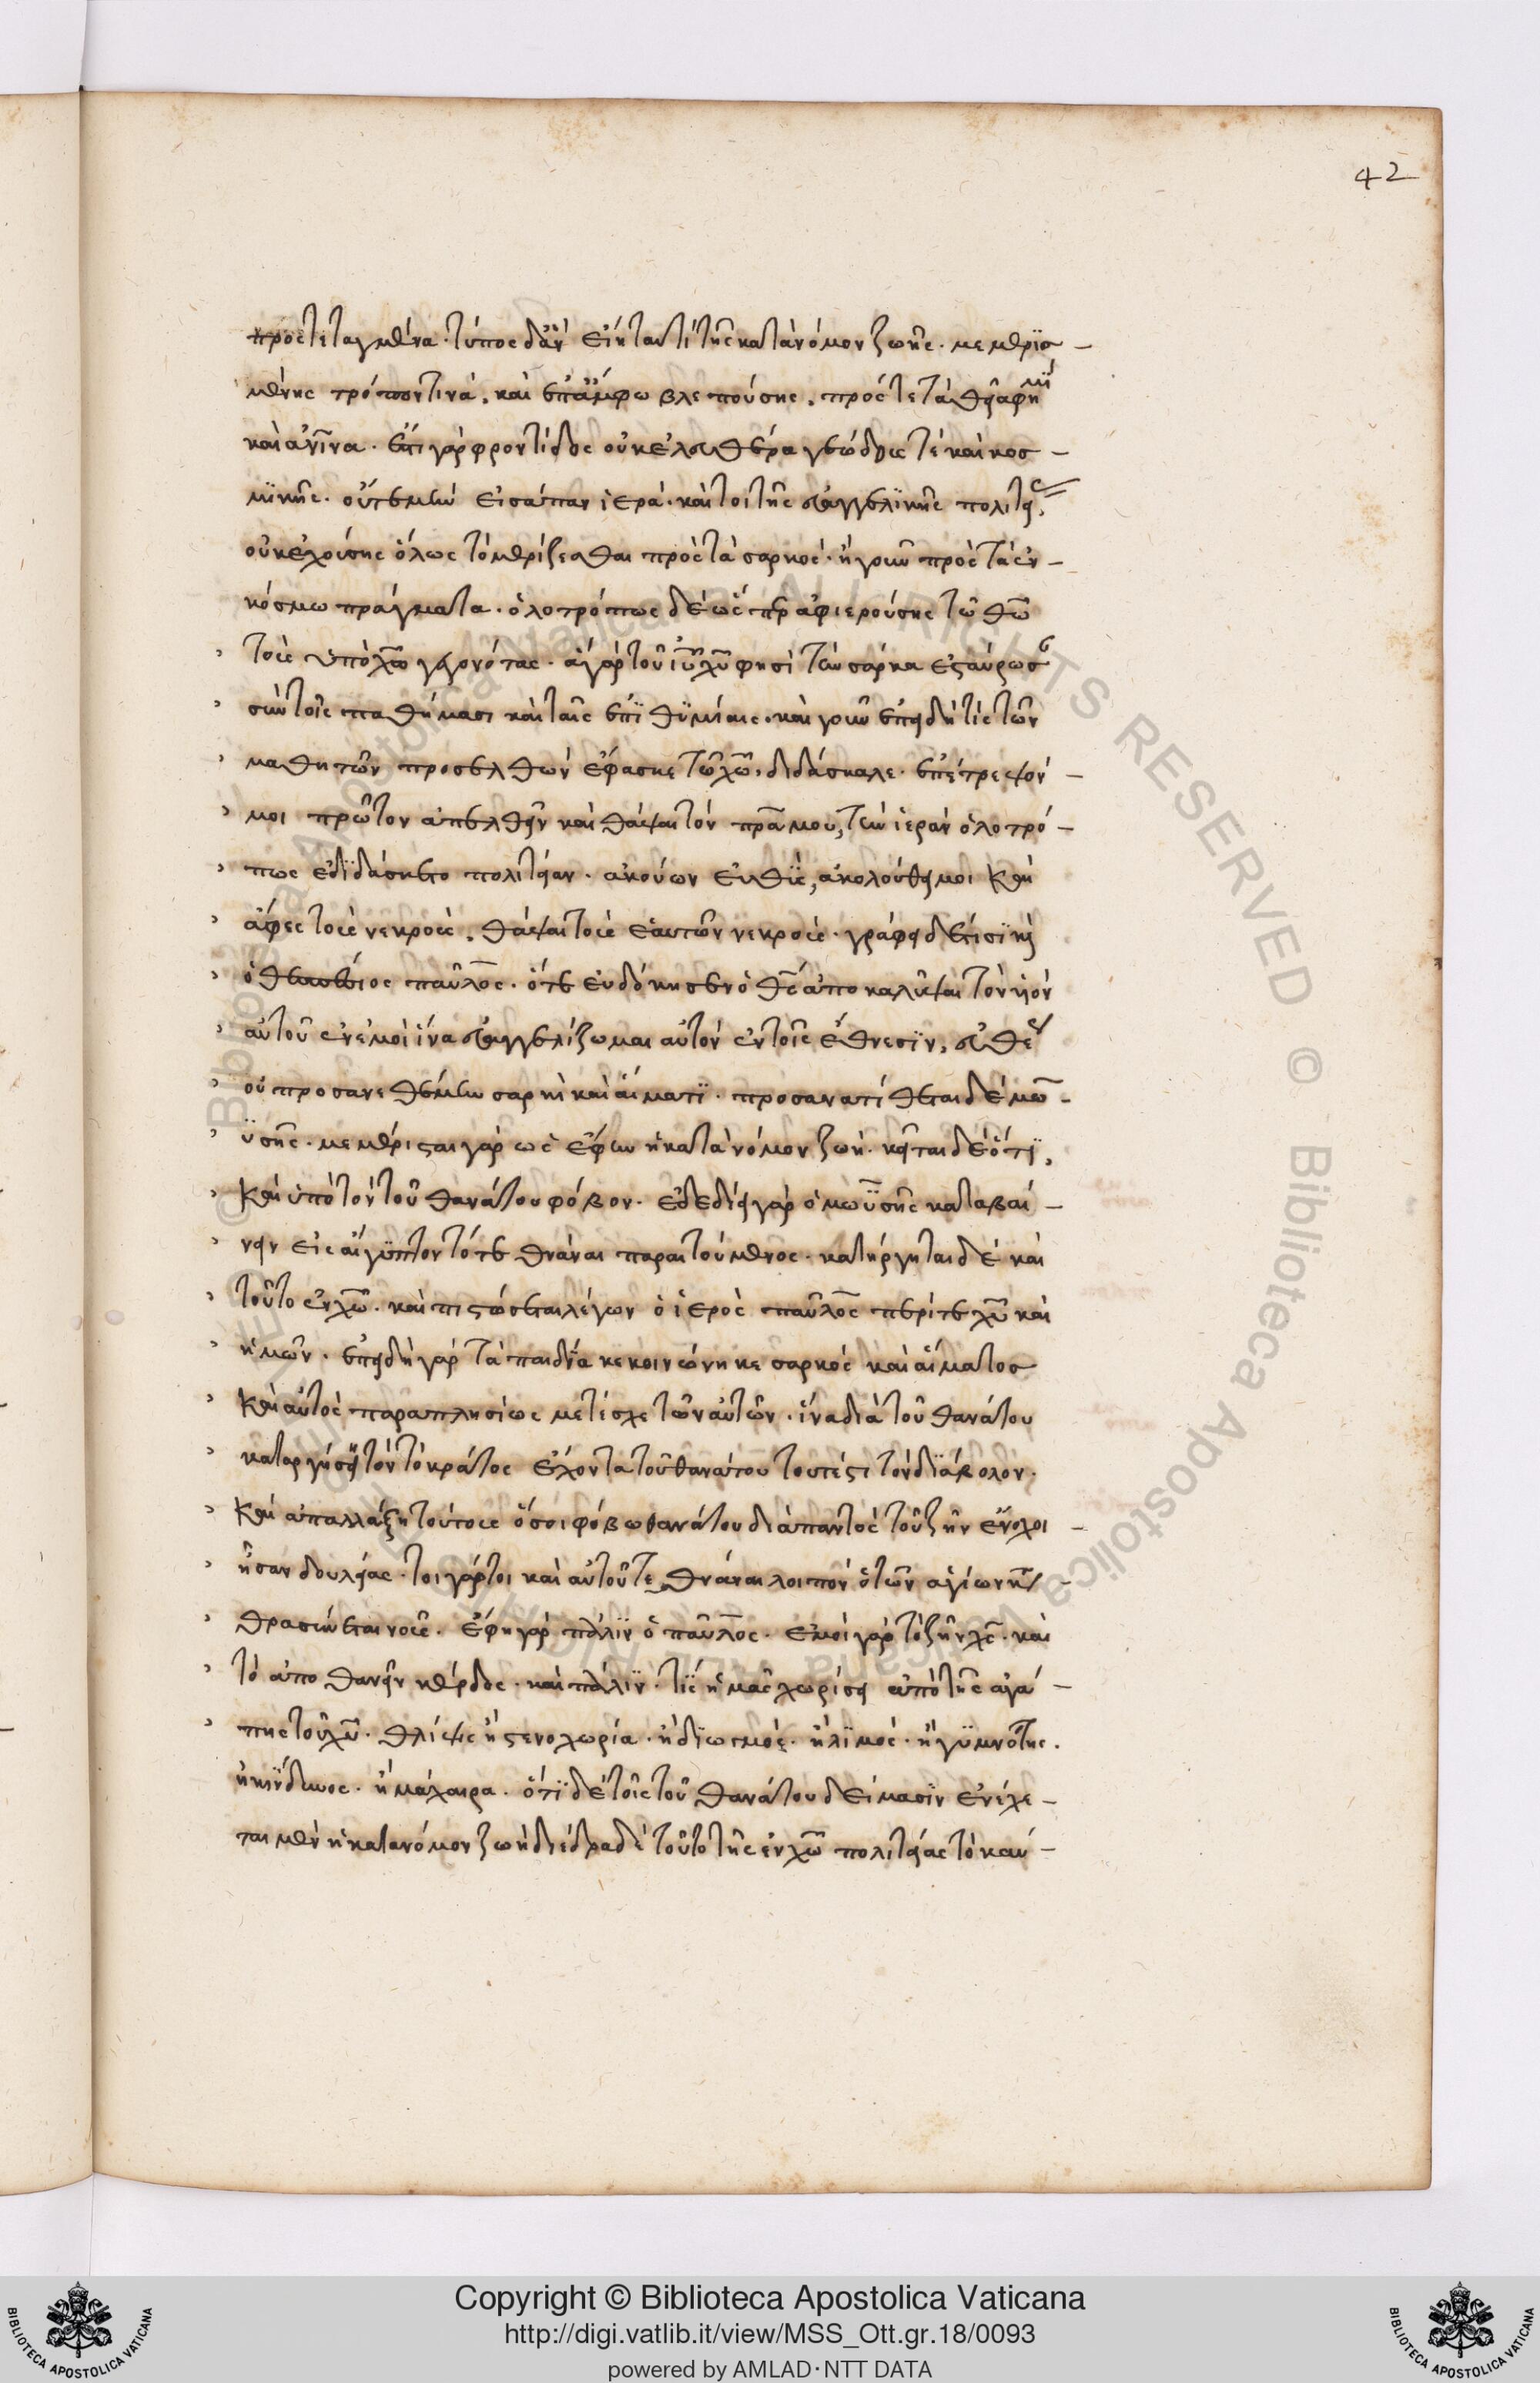 42
προστεταγμένα. τύπος δ' ἂν εἴη ταυτὶ τῆς κατὰ νόμον ζωῆς. μεμερϊσ-
μένης τρόπον τινά. καὶ ἐπ' ἄμφω βλεπούσης. πρός τε τὰ
καὶ ἀνῖνα. ἔτι γὰρ φροντίδος οὐκ ἐλευθέρα γεώδους τέ καὶ κοσ-
μϊκῆς. οὔτε μὴν εἰσάπαν ἱερά. καὶ τοι τῆς εὐαγγελϊκῆς πολιτείας
οὐκ ἐχούσης ὅλως τὸ μερίζεσθαι πρὸς τὰ σαρκός. ἤγουν πρὸς τὰ ἐν
κόσμω πράγματα. ὁλοτρόπως δέ ὡς πρ ἀφιερούσης τῶ θῶ
τοὺς ὑπὸ χῶ γεγονότας. οἱ γάρ τοῦ ἰῦ χῦ φησὶ τὴν σάρκα ἐσταύρωσαν
σὺν τοῖς παθήμασι καὶ ταῖς ἐπϊθϋμίαις. καὶ γοῦν ἐπειδή τίς τῶν
μαθητῶν προσελθὼν ἔφασκε τῶ χῶ. διδάσκαλε. ἐπέτρεψόν
μοι πρῶτον ἀπελθεῖν καὶ θάψαι τόν πρα μου, τὴν ἱερὰν ὁλοτρό-
πως ἐδϊδάσκετο πολιτείαν. ἀκούων εὐθϋς, ἀκολούθει μοι καὶ
ἄφες τοὺς νεκροὺς. θάψαι τοὺς ἑαυτῶν νεκρούς. γράφει δέ
ὁ θεσπέσιος παῦλος. ὅτε εὐδόκησεν ὁ θς ἀποκαλύψαι τὸν υἱὸν
αὐτοῦ ἐν ἐμοὶ ἵνα εὐαγγελίζωμαι αὐτόν ἐν τοῖς ἔθνεσϊν, εὐθέως
οὐ προσανεθέμην σαρκὶ καὶ αἵματϊ. προσανατίθεται δέ μω-
ϋσῆς. μεμέρισται γάρ ὡς ἔφην ἡ κατὰ νόμον ζωή. κεῖται δέ ὅτϊ,
καὶ ὑπὸ τὸν τοῦ θανάτου φόβον. ἐδεδίει γὰρ ὁ μωϋσῆς καταβαί-
νειν εἰς αἴγϋπτον τό τεθνάναι παραιτούμενος. κατήργηται δέ καὶ
τοῦτο ἐν χῶ. καὶ πιστώσεται λέγων ὁ ἱερὸς παῦλος περί τε χῦ καὶ
ἡμῶν. ἐπειδή γάρ τὰ παιδία κεκοινώνηκε σαρκός καὶ αἵματος
καὶ αὐτὸς παραπλησίως μετέσχε τῶν αὐτῶν. ἵνα διὰ τοῦ θανάτου
καταργήση τόν τό κράτος ἔχοντα τοῦ θανάτου τουτέστι τόν δϊάβολον.
καὶ ἀπαλλάξη τούτους ὅσοι φόβω θανάτου διὰ παντὸς τοῦ ζῆν ἔνοχοι
ἦσαν δουλείας. τοιγάρτοι καὶ αὐτοῦ τεθνάναι λοιπόν ὁ τῶν ἁγίων κα-
θρασύνεται νοῦς. ἔφη γάρ πάλϊν ὁ παῦλος. ἐμοὶ γάρ τὸ ζῆν χς. καὶ
τὸ ἀποθανεῖν κέρδος. καὶ πάλϊν. τϊς ἡμᾶς χωρίσει ἀπὸ τῆς ἀγά-
πης τοῦ χῦ. θλίψις ἢ στενοχωρία. ἢ δϊωγμός. ἢ λϊμός. ἢ γϋμνότης.
ἢ κϊνδυνος. ἢ μάχαιρα. ὅτϊ δέ τοῖς τοῦ θανάτου δείμασϊν ἐνέχε-
ται μὲν ἡ κατα νόμον ζωὴ διέδρα δὲ τοῦτο τῆς ἐν χῶ πολιτείας τὸ καύ-
Copyright © Biblioteca Apostolica Vaticana
http://digi.vatlib.it/view/MSS_Ott.gr.18/0093
powered by AMLAD·NTT DATA